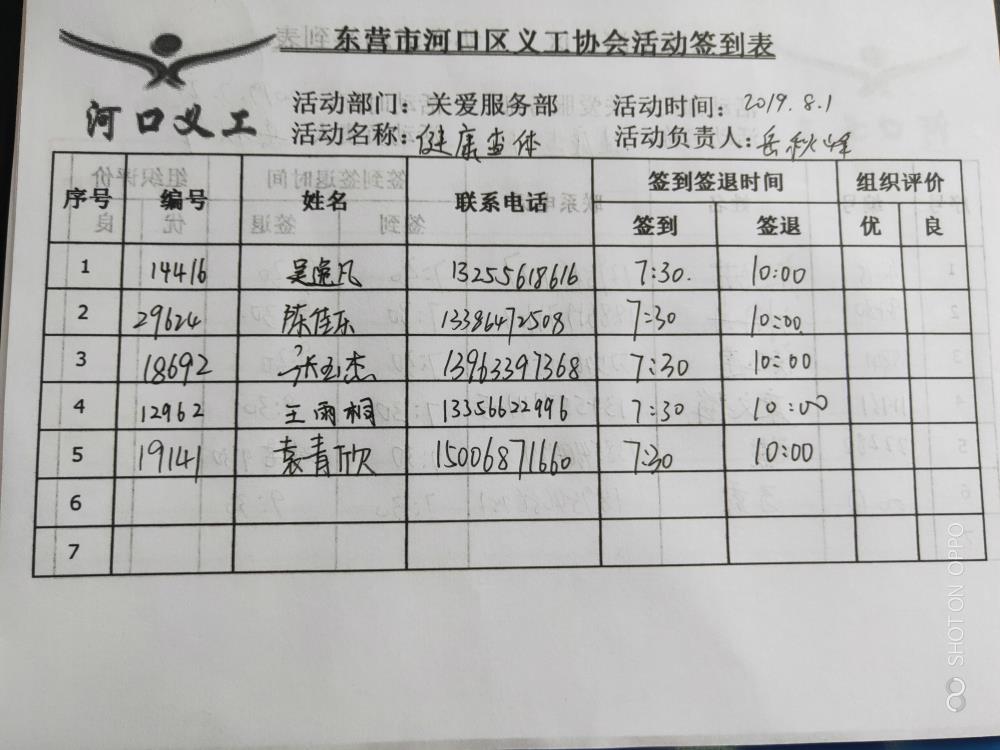 东营市河口区义工协会活动签到表
河口义工
活动部门：关爱服务部 活动时间：2019.8.1
活动名称：健康当体 活动负责人：岳秋峰
序号 编号 姓名 联系电话 签到签退时间 组织评价
签到 签退 优 良
1 14416 吴逸凡 13255618616 7:30. 10:00
2 29624 陈佳乐 13386472508 7:30 10:00
3 18692 张玉杰 13963397368 7:30 10:00
4 12962 王雨桐 13356622996 7:30 10:00
5 19141 袁青欣 15006871660 7:30 10:00
6
7
SHOT ON OPPO